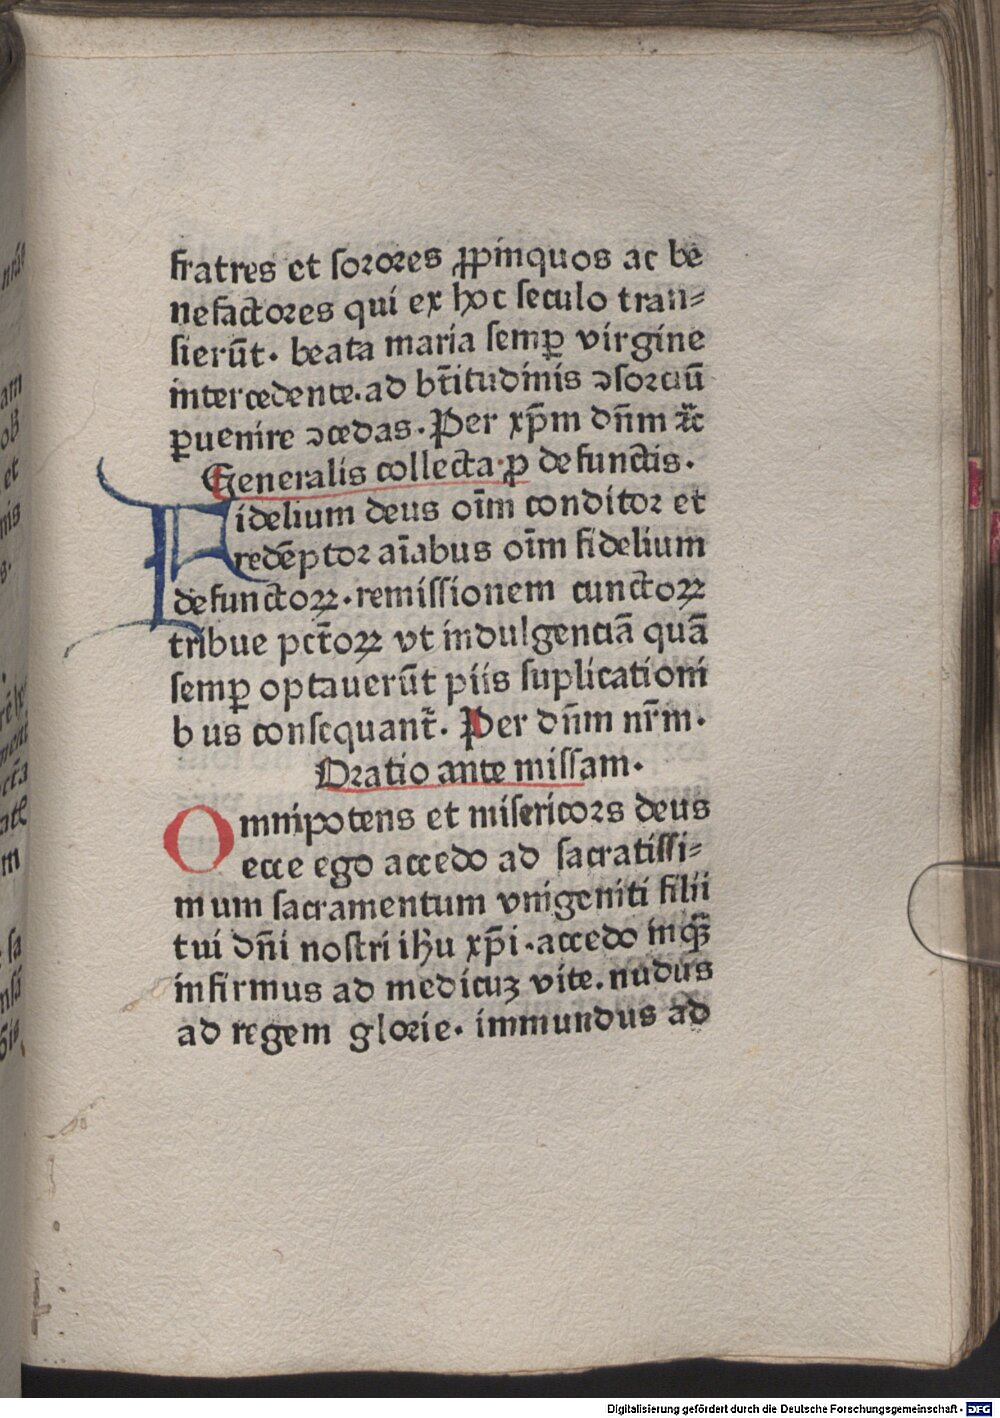 fratres et sorores ꝓpinquos ac be
nefactores qui ex hoc seculo tran⸗
sierūt. beata maria semꝑ virgine
intercedente. ad bt̄itudinis ↄsorciū
ꝑuenire ↄcedas. Per xp̄m dn̄m ⁊c̄
Generalis collecta ꝓ defunctis.
Fidelium deus oīm conditor et
redēptor aīabus oīm fidelium
defunctoꝝ. remissionem cunctoꝝ
tribue pct̄oꝝ vt indulgenciā quā
semꝑ optauerūt piis suplicationi
b us consequant̄. Per dn̄m nr̄m.
Oratio ante missam.
Omnipotens et misericors deus
ecce ego accedo ad sacratissi⸗
mum sacramentum vnigeniti filii
tui dn̄i nostri ihu̅ xp̄i. accedo inqꝫ
infirmus ad medicuꝫ vite. nudus
ad regem glorie. immundus ad
Digitalisierung gefördert durch die Deutsche Forschungsgemeinschaft - DFG